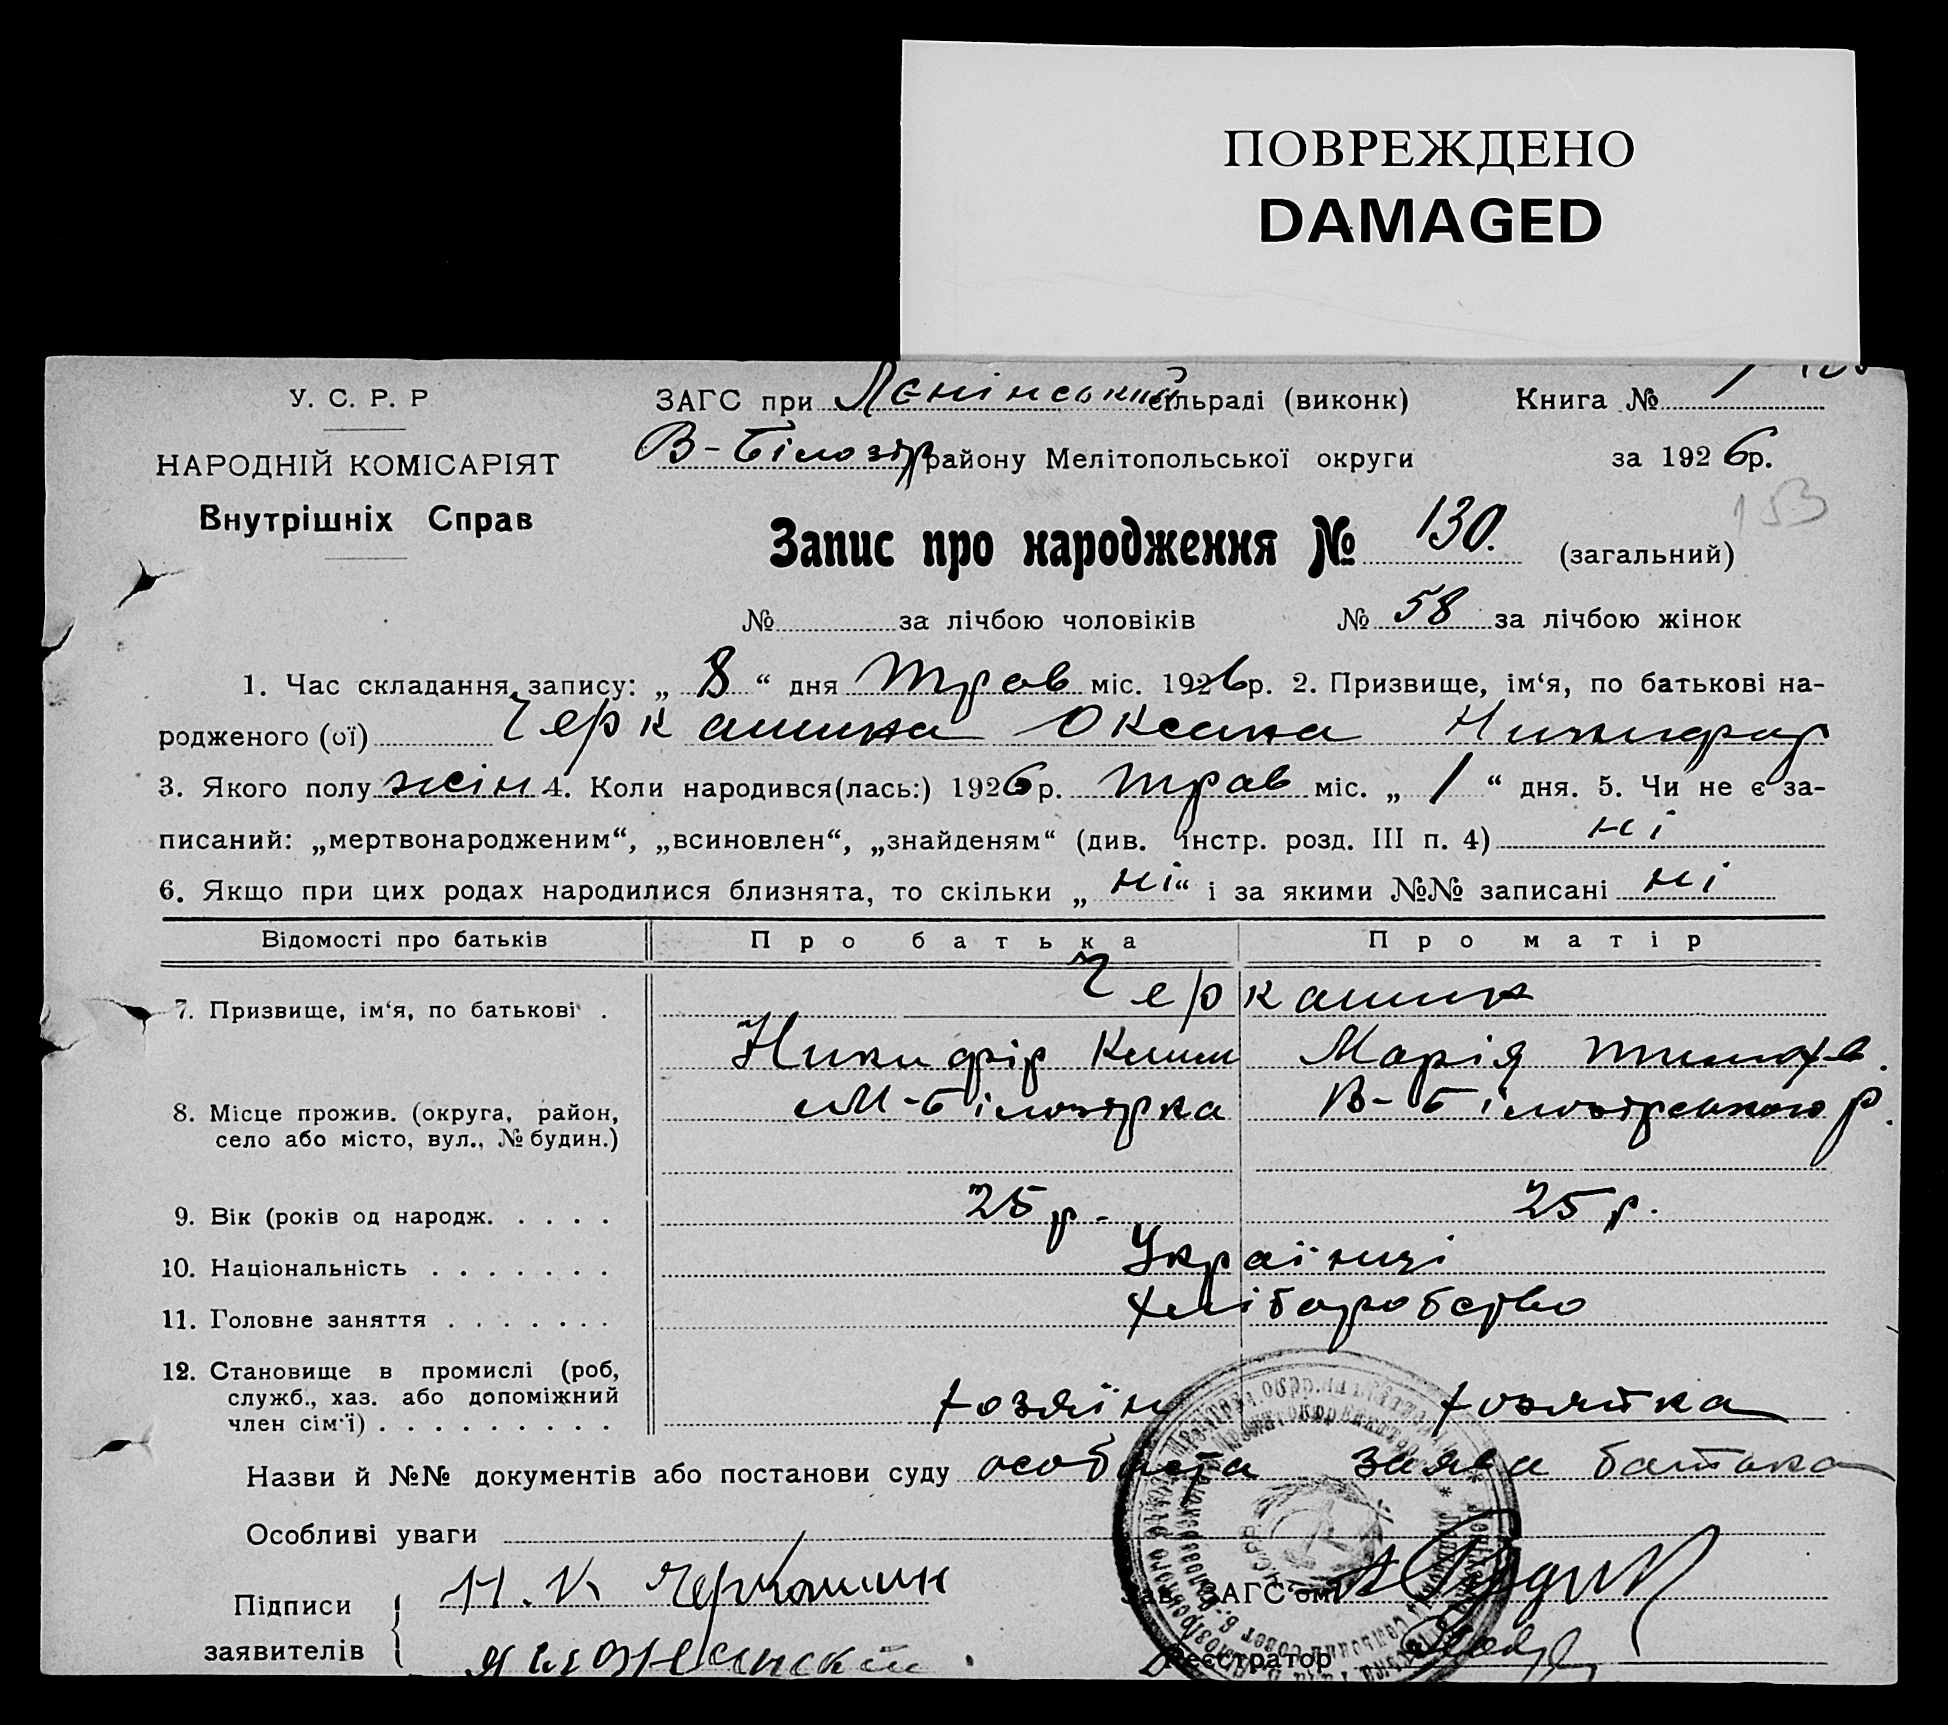 ПОВРЕЖДЕНО
DAMAGED
У. С. Р. Р
НАРОДНІЙ КОМІСАРІЯТ
Внутрішніх Справ
ЗАГС при Ленінський сільраді (виконк)
Книга №
В-Білозір району Мелітопольської округи
за 1926р.
153
Запис про народження № 130. (загальний)
№ за лічбою чоловіків № 58 за лічбою жінок
1. Час складання запису: „ 8 “ дня трав міс. 1926р. 2. Призвище, ім‘я, по батькові на-
родженого (ої) Черкашина Оксана Никифор
3. Якого полу жін 4. Коли народився(лась:) 1926р. трав міс. „ 1 “ дня. 5. Чи не є за-
писаний: „мертвонародженим“, „всиновлен“, „знайденям“ (див. інстр. розд. III п. 4) ні
6. Якщо при цих родах народилися близнята, то скільки „ ні “ і за якими №№ записані ні
Відомості про батьків Про батька Про матір
7. Призвище, ім‘я, по батькові . Черкашин
Никифір Клим Марія Тимохв.
8. Місце прожив. (округа, район, М-Білозірка В-Білозірського р.
село або місто, вул., № будин.)
9. Вік (років од народж. . . . . 25 р. 25 р.
10. Національність . . . . . . . Українці
11. Головне заняття . . . . . . . хліборобство
12. Становище в промислі (роб,
служб., хаз. або допоміжний хозяїн хозяйка
член сім‘ї) . . . . . . . . .
Назви й №№ документів або постанови суду особиста заява батька
Особливі уваги
Підписи
заявителів
Н. К Черкашин
Зав. ЗАГС‘ом
Реєстратор